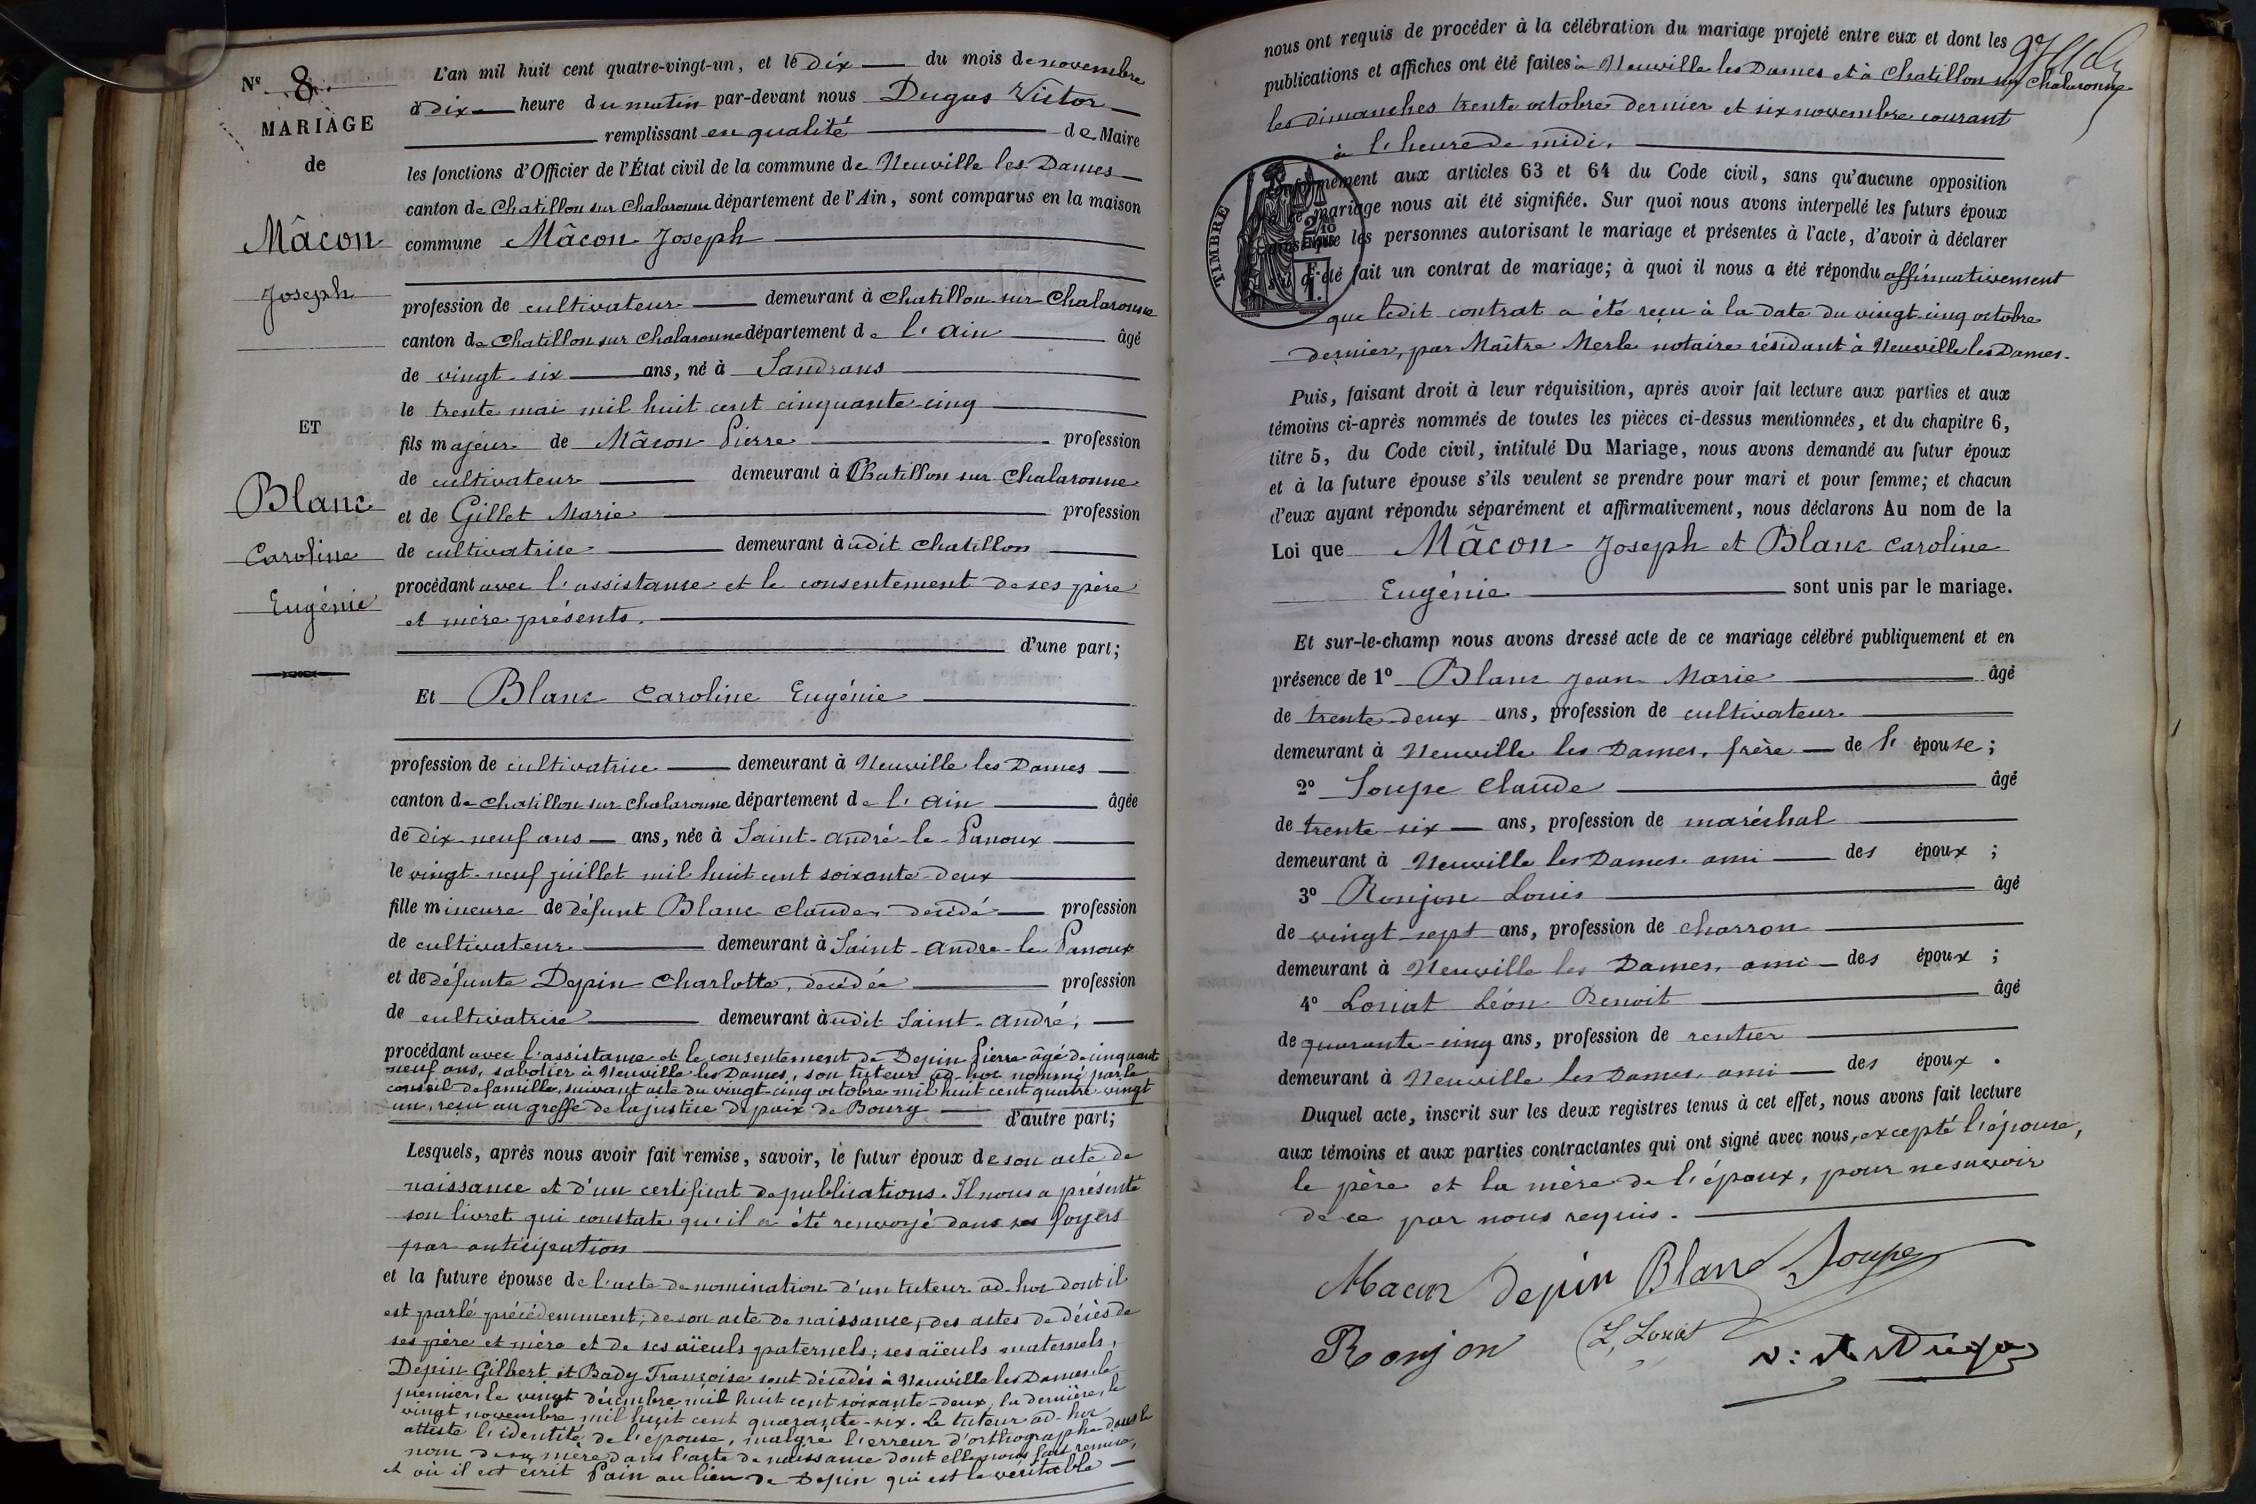 N° 8
MARIAGE
de
Mâcon
Joseph
ET
Blanc
Caroline
Eugénie
L'an mil huit cent quatre-vingt-un, et le dix du mois de novembre
à dix heure du matin par-devant nous Dugas Victor
remplissant en qualité de Maire
les fonctions d'Officier de l'État civil de la commune de Neuville les Dames
canton de Chatillon sur Chalaronne département de l'Ain, sont comparus en la maison
commune Mâcon Joseph
profession de cultivateur demeurant à Chatillon sur Chalaronne
canton de Chatillon sur Chalaronne département de l'Ain âgé
de vingt-six ans, né à Sandrans
le trente mai mil huit cent cinquante-cinq
fils majeur de Mâcon Pierre profession
de cultivateur demeurant à Chatillon sur Chalaronne
et de Gillet Marie profession
de cultivatrice demeurant à udit Chatillon
procédant avec l'assistance et le consentement de ses père
et mère présents.
d'une part;
Et Blanc Caroline Eugénie
profession de cultivatrice demeurant à Neuville les Dames
canton de Chatillon sur Chalaronne département de l'Ain âgée
de dix-neuf ans ans, née à Saint-André-le-Panoux
le vingt-neuf juillet mil huit cent soixante-deux
fille mineure de défunt Blanc Claude, décédé profession
de cultivateur demeurant à Saint-André-le Panoux
et de défunte Depin Charlotte, décédée profession
de cultivatrice demeurant à udit Saint-André,
procédant avec l'assistance et le consentement de Depin Pierre âgé de cinquant
neuf ans, sabotier à Neuville les Dames, son tuteur ad-hoc nommé par le
conseil de famille, suivant acte du vingt-cinq octobre mil huit cent quatre-vingt
un, reçu au greffe de la justice de paix de Bourg
d'autre part;
Lesquels, après nous avoir fait remise, savoir, le futur époux de son acte de
naissance et d'un certificat de publications. Il nous a présenté
son livret qui constate qu'il a été renvoyé dans ses foyers
par anticipation
et la future épouse de l'acte de nomination d'un tuteur ad-hoc dont il
est parlé précédemment; de son acte de naissance, des actes de décès de
ses père et mère et de ses aïeuls paternels; ses aïeuls maternels,
Depin Gilbert et Bady Françoise sont décédés à Neuville les Dames, le
premier, le vingt décembre mil huit cent soixante-deux, la dernière, le
vingt novembre mil huit cent quarante-six. Le tuteur ad-hoc
atteste l'identité de l'épouse, malgré l'erreur d'orthographe dans le
nom de sa mère dans l'acte de naissance dont elle nous fait remise,
et où il est écrit Pain au lieu de Depin qui est le véritable
nous ont requis de procéder à la célébration du mariage projeté entre eux et dont les
publications et affiches ont été faites à Neuville les Dames et à Chatillon sur Chalaronne
les dimanches trente octobre dernier et six novembre courant
à l'heure de midi,
TIMBRE
conformément aux articles 63 et 64 du Code civil, sans qu'aucune opposition
à ce mariage nous ait été signifiée. Sur quoi nous avons interpellé les futurs époux
ainsi que les personnes autorisant le mariage et présentes à l'acte, d'avoir à déclarer
s'il a été fait un contrat de mariage; à quoi il nous a été répondu affirmativement
que ledit contrat a été reçu à la date du vingt-cinq octobre
dernier, par Maître Merle notaire résidant à Neuville les Dames.
Puis, faisant droit à leur réquisition, après avoir fait lecture aux parties et aux
témoins ci-après nommés de toutes les pièces ci-dessus mentionnées, et du chapitre 6,
titre 5, du Code civil, intitulé Du Mariage, nous avons demandé au futur époux
et à la future épouse s'ils veulent se prendre pour mari et pour femme; et chacun
d'eux ayant répondu séparément et affirmativement, nous déclarons Au nom de la
Loi que Mâcon Joseph et Blanc Caroline
Eugénie sont unis par le mariage.
Et sur-le-champ nous avons dressé acte de ce mariage célébré publiquement et en
présence de 1° Blanc Jean Marie âgé
de trente-deux ans, profession de cultivateur
demeurant à Neuville les Dames, frère de l' épouse;
2° Soupe Claude âgé
de trente-six ans, profession de maréchal
demeurant à Neuville les Dames, ami des époux;
3° Ronjon Louis âgé
de vingt-sept ans, profession de charron
demeurant à Neuville les Dames, ami des époux;
4° Loriat Léon Benoit âgé
de quarante-cinq ans, profession de rentier
demeurant à Neuville les Dames, ami des époux.
Duquel acte, inscrit sur les deux registres tenus à cet effet, nous avons fait lecture
aux témoins et aux parties contractantes qui ont signé avec nous, excepté l'épouse,
le père et la mère de l'époux, pour ne savoir
de ce par nous requis.
Macon Depin Blanc Soupe
Ronjon L. Loriat